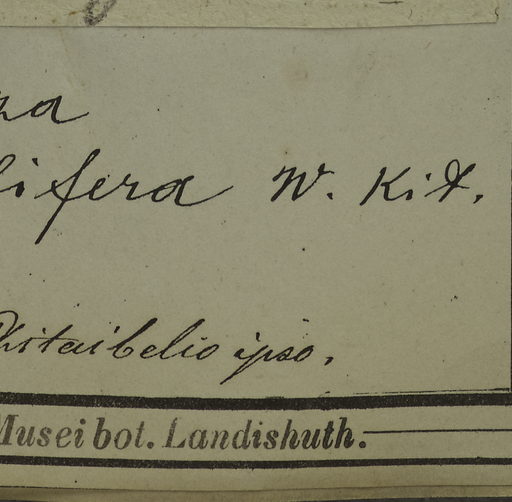 na
lifera W. Kit.
Kitaibelio ipso.
Musei bot. Landishuth.